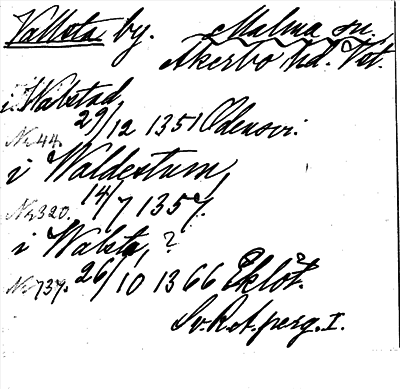 Vallsta by. Malma sn.
Åkerbo hd. Vstl.
i Walstad
Nr 44. 29/12 1351 Odensvi.
i Waldestum,
Nr 320. 14/7 1357.
i Walsta, ?
Nr 737. 26/10 1366 Eklöt.
Sv. Ret. perg. I.